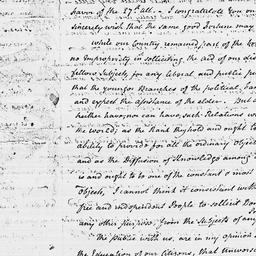 favor of the 17th ult. I congratulate you on
sincerely wish that the same good Fortune may
while our Country remained part of the
no Impropriety in solliciting the aid of our
fellow Subjects for any liberal and public
that the younger Branches of the political
and expect the assistance of the elder. But
neither have, nor can have, such Relations
the world; as the Rank they hold and ought to
ability to provide for all the ordinary Objects
and as the Diffusion of Knowledge among
is and ought to be one of the constant & most
Objects, I cannot think it consistent with
free and independent People to sollicit
any other purpose, from the Subjects of any
The public with us, are in my opinion
the Education of our Citizens, that